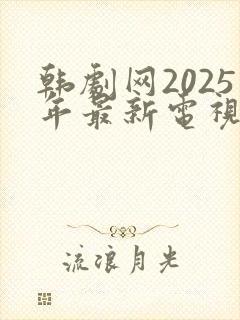 韩劇网2025
年最新電視
流浪月光